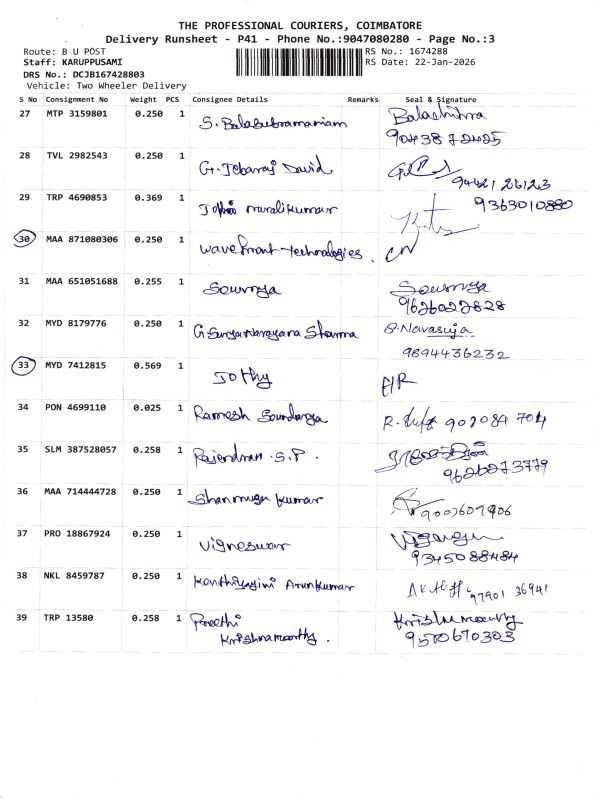 THE PROFESSIONAL COURIERS, COIMBATORE
Delivery Runsheet - P41 - Phone No.:9047080280 - Page No.:3
Route: B U POST RS No.: 1674288
Staff: KARUPPUSAMI RS Date: 22-Jan-2026
DRS No.: DCJB167428803
Vehicle: Two Wheeler Delivery
S No Consignment No Weight PCS Consignee Details Remarks Seal & Signature
27 MTP 3159801 0.250 1 S. Balasubramaniam Balachitra
90438 72425
28 TVL 2982543 0.250 1 G. Jebaraj David
94421 26123
29 TRP 4690853 0.369 1 muralikumar 9363010880
30 MAA 871080306 0.250 1 wavefront Technologies.
31 MAA 651051688 0.255 1 Sowmya Sowmya
9626027828
32 MYD 8179776 0.250 1 G. Suryanarayana Sharma
9894436232
33 MYD 7412815 0.569 1 Jothy
34 PON 4699110 0.025 1 Ramesh Soundarya R.
35 SLM 387528057 0.258 1 Rajendran .S.P.
9626273779
36 MAA 714444728 0.250 1 Shanmuga kumar
9003607906
37 PRO 18867924 0.250 1 Vigneswar
9345088484
38 NKL 8459787 0.250 1 Arunkumar
97901 36941
39 TRP 13580 0.258 1 Preethi Krishnamoorthy
Krishnamoorthy. 9500670303